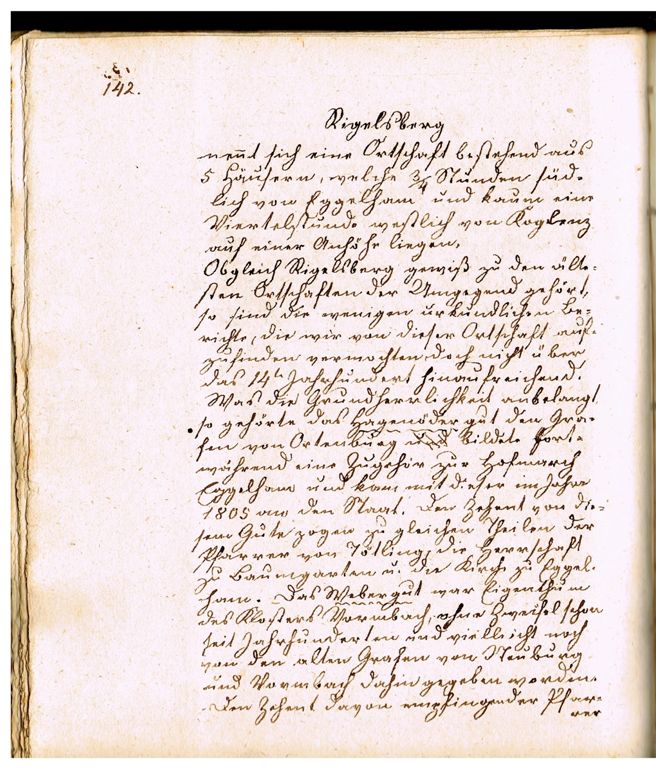 142.
Rigelsberg
nennt sich eine Ortschaft bestehend aus
5 Häusern, welche 3/4 Stunden süd-
lich von Eggelham und kaum eine
Viertelstunde westlich von Koglenz
auf einer Anhöhe liegen.
Obgleich Rigelsberg gewiß zu den älte-
sten Ortschaften der Umgegend gehört,
so sind die wenigen urkundlichen Be-
richte, die wir von dieser Ortschaft auf-
zufinden vermochten doch nicht über
das 14te Jahrhundert hinaufreichend.
Was die Grundherrlichkeit anbelangt,
so gehörte das Hagenöder gut den Gra-
fen von Ortenburg und bildete fort-
während eine Zugehör zur Hofmarch
Eggelham und kam mit dieser im Jahre
1805 an den Staat. Den Zehent von die-
sem Gute zogen zu gleichen Theilen der
Pfarrer von Tötling, die Herrschaft
zu Baumgarten u. die Kirche zu Eggel-
ham. Das Webergut war Eigenthum
des Klosters Vormbach, ohne Zweifel schon
seit Jahrhunderten und vielleicht noch
von den alten Grafen von Neuburg
und Vormbach dahin gegeben worden.
Den Zehent davon empfingen der Pfar-
rer